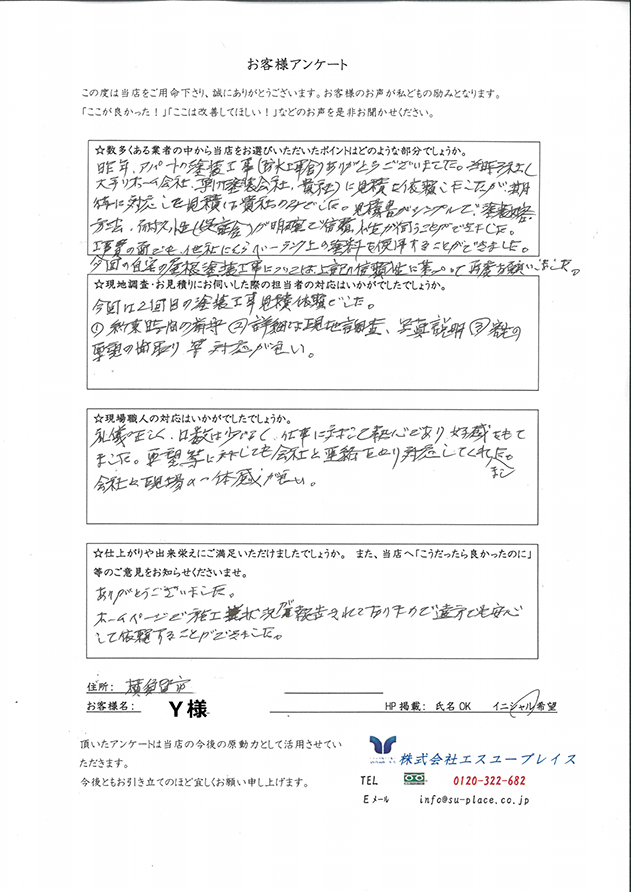 お客様アンケート
この度は当店をご用命下さり、誠にありがとうございます。お客様のお声が私どもの励みとなります。
「ここが良かった！」「ここは改善してほしい！」などのお声を是非お聞かせください。
☆数多くある業者の中から当店をお選びいただいたポイントはどのような部分でしょうか。
昨年、アパートの塗装工事(防水工事含)ありがとうございました。当時
大手リホーム会社、専門塗装会社、貴社)に見積を依頼しましたが、期
待に対応した見積は貴社のみでした。見積書がシンプルで、塗装内容
方法、耐久性(保証含)が明確で信頼性が伺うことができました。
工事費の面でも他社にくらべ一ランク上の塗料を使用することができました。
今回の自宅の屋根塗装工事については上記の信頼性に基づいて再度お願いしました。
☆現地調査・お見積りにお伺いした際の担当者の対応はいかがでしたでしょうか。
今回は2回目の塗装工事見積体験でした。
①約束時間の厳守 ②詳細な現地調査、写真説明 ③客の
要望の聞取り 等 対応が良い。
☆現場職人の対応はいかがでしたでしょうか。
礼儀正しく、口数は少なく、仕事に対して熱心であり好感をもて
ました。要望等に対しても会社と連絡をとり対応してくれました。
会社と現場の一体感が良い。
☆仕上がりや出来栄えにご満足いただけましたでしょうか。 また、当店へ「こうだったら良かったのに」
等のご意見をお知らせくださいませ。
ありがとうございました。
ホームページで施工状況が報告されておりますので遠方でも安心
して依頼することができました。
住所： 横須賀市
お客様名： Y様 HP掲載： 氏名OK イニシャル希望
頂いたアンケートは当店の今後の原動力として活用させてい
ただきます。
今後ともお引き立てのほど宜しくお願い申し上げます。
株式会社エスユープレイス
TEL 0120-322-682
Eメール info@su-place.co.jp